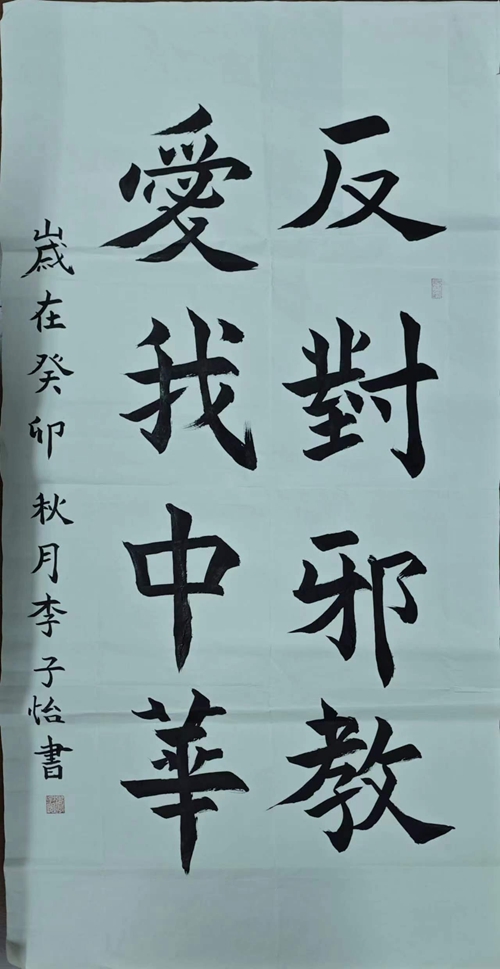 反對邪教
愛我中華
歲在癸卯秋月李子怡書